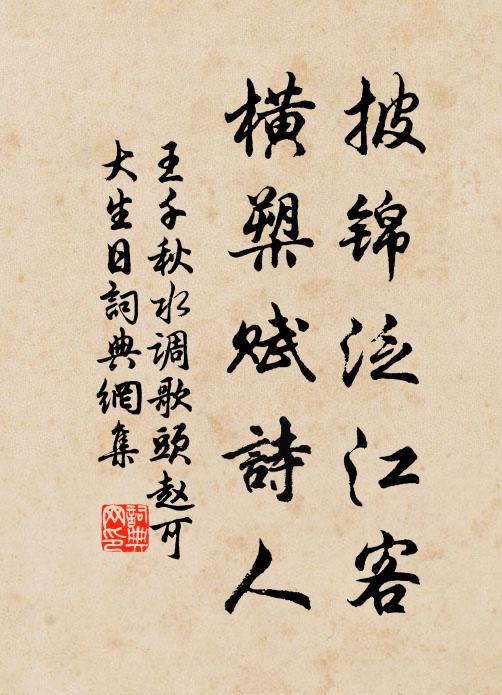 披锦泛江客
横槊赋詩人
王千秋水调歌頭赵可
大生日詞典網集
詞典网印